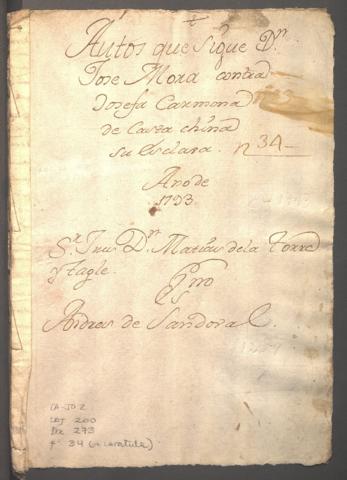 +
Autos que sigue Dn
Jose Mora contra
Josefa Carmona
de Casta china
su Esclava. n 34
Año de
1793
Sr Jues Dn Matias de la Torre
y Tagle.
Esno
Andres de Sandoval.
CA-JO 2
LEJ 200
Exp 273
f. 34 (+ caratula)